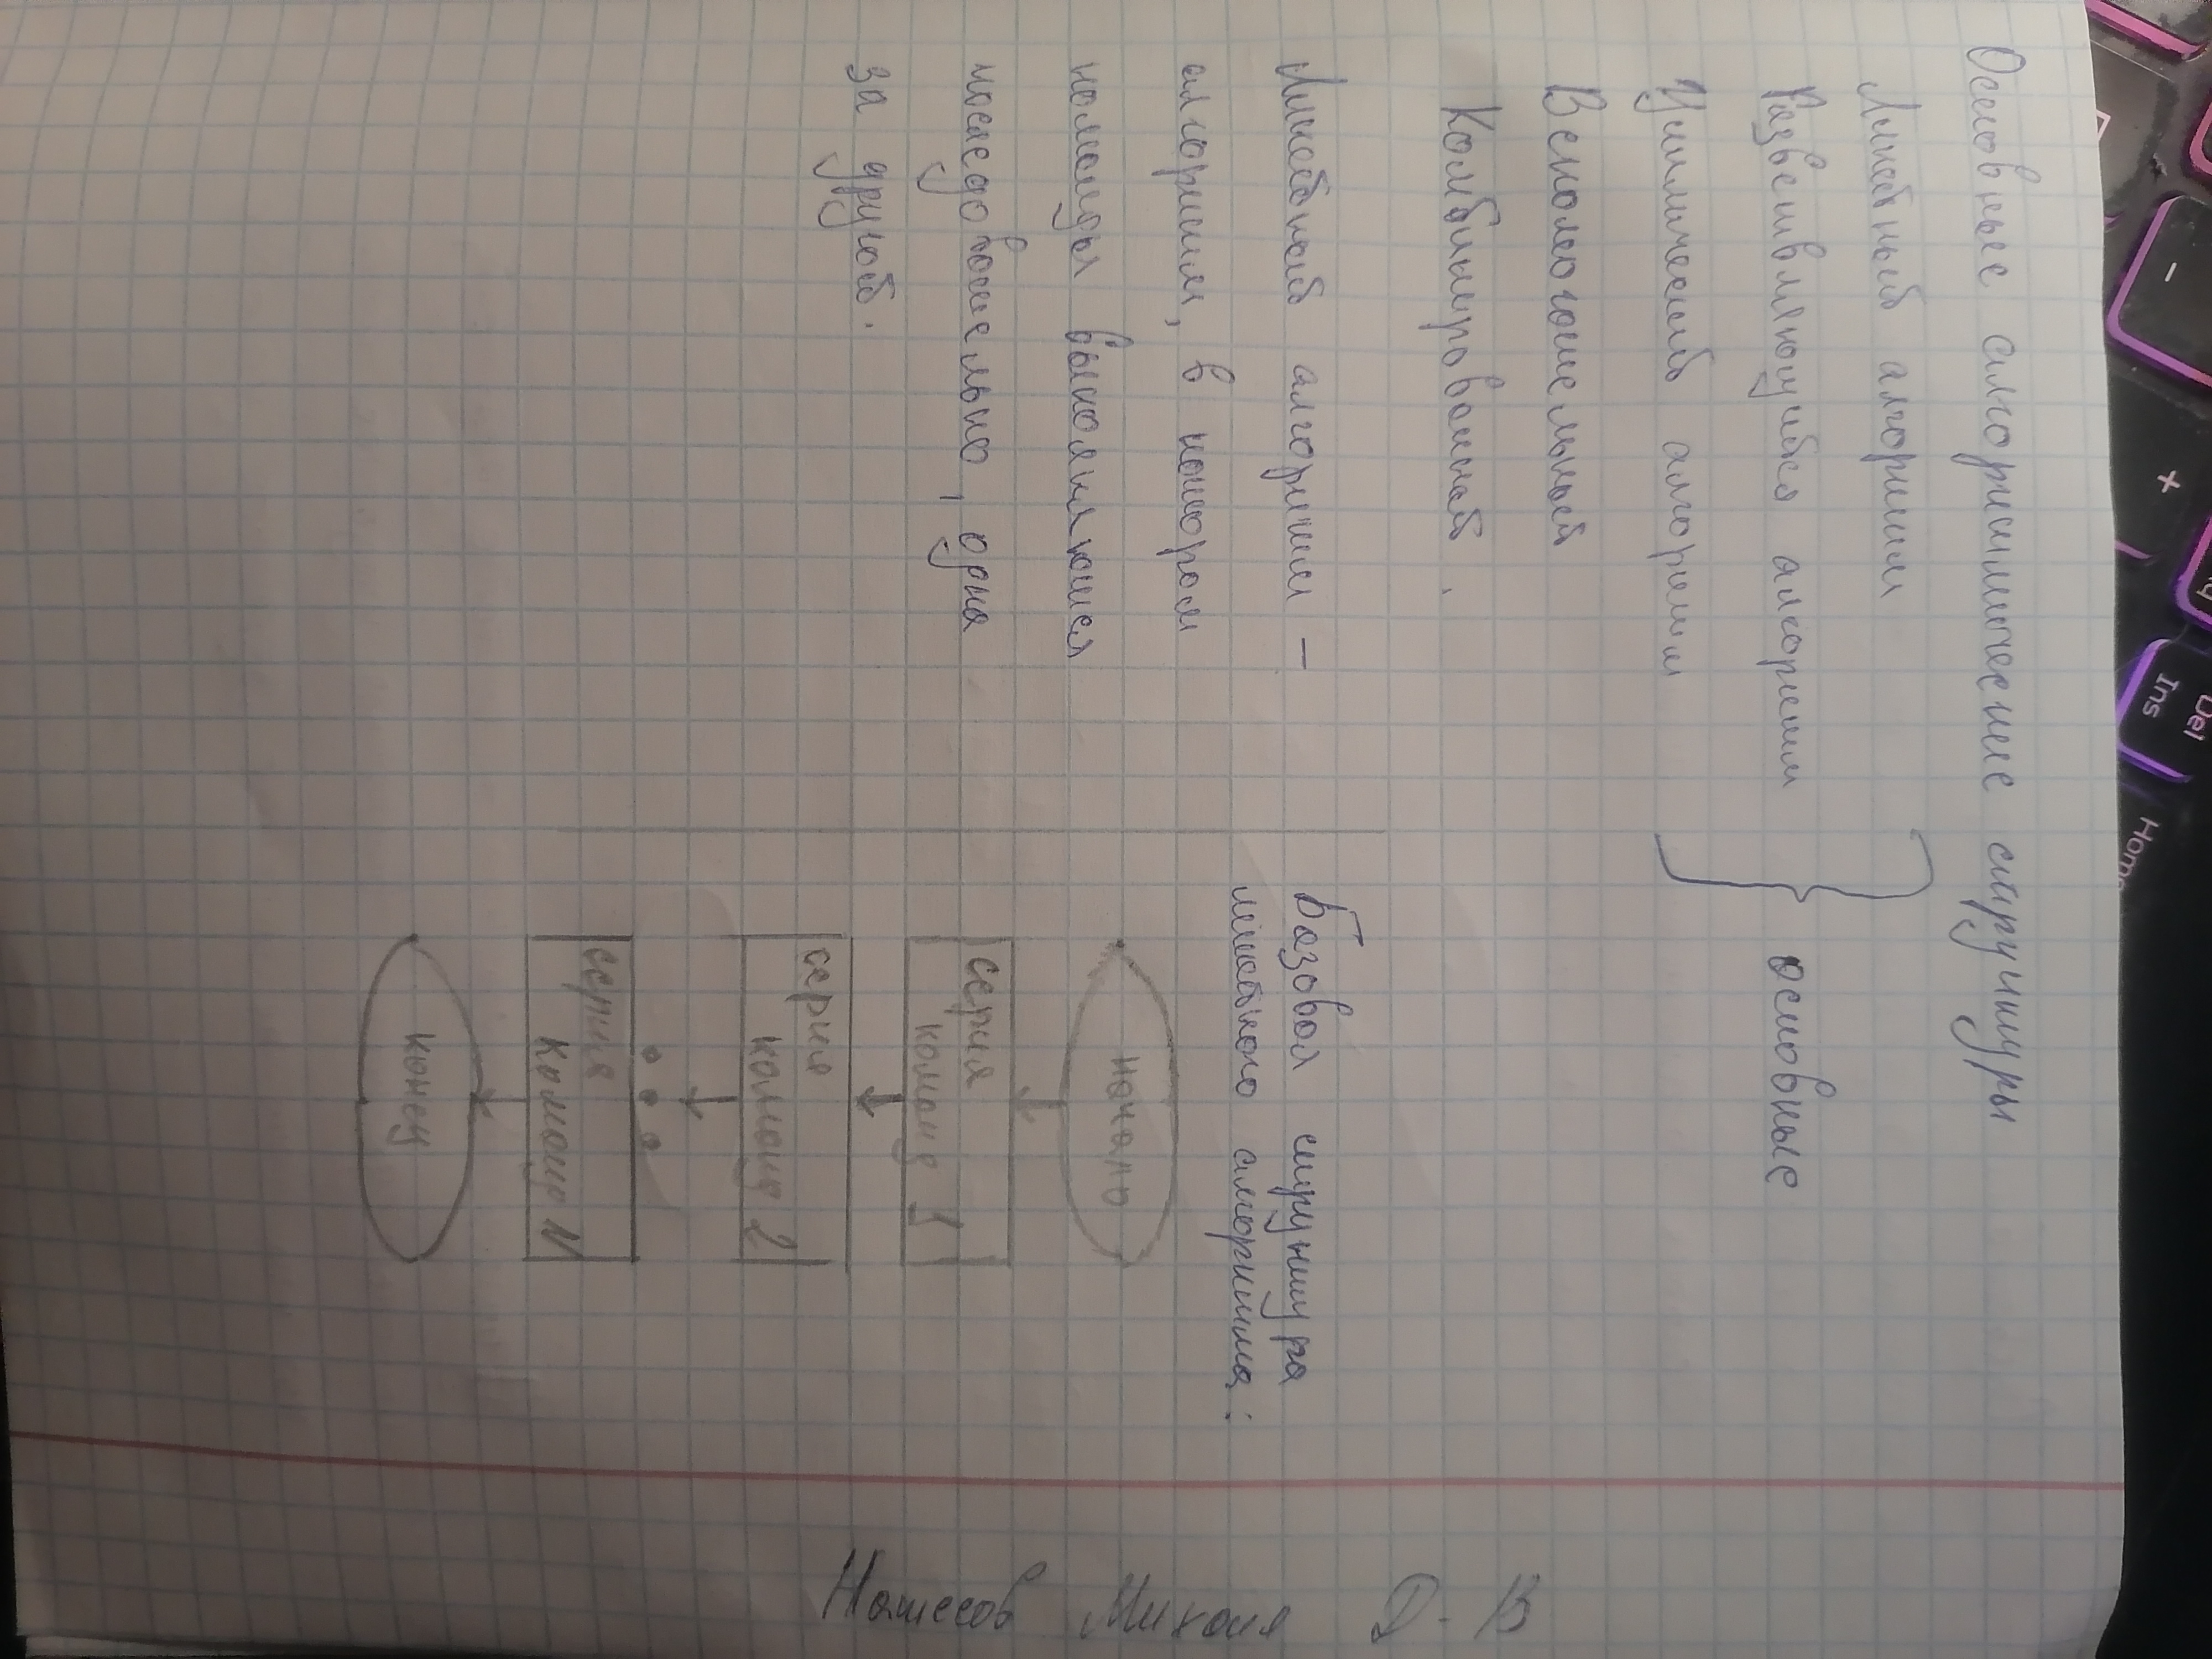 Основные алгоритмические структуры
Линейный алгоритм
Разветвляющийся алгоритм
Циклический алгоритм
основные
Вспомогательный
Комбинированный.
Линейный алгоритм –
алгоритм, в котором
команды выполняются
последовательно, одна
за другой.
Базовая структура
линейного алгоритма:
начало
серия
команд 1
серия
команд 2
серия
команд N
конец
Михаил Д-В
-
+
Del
Ins
Home